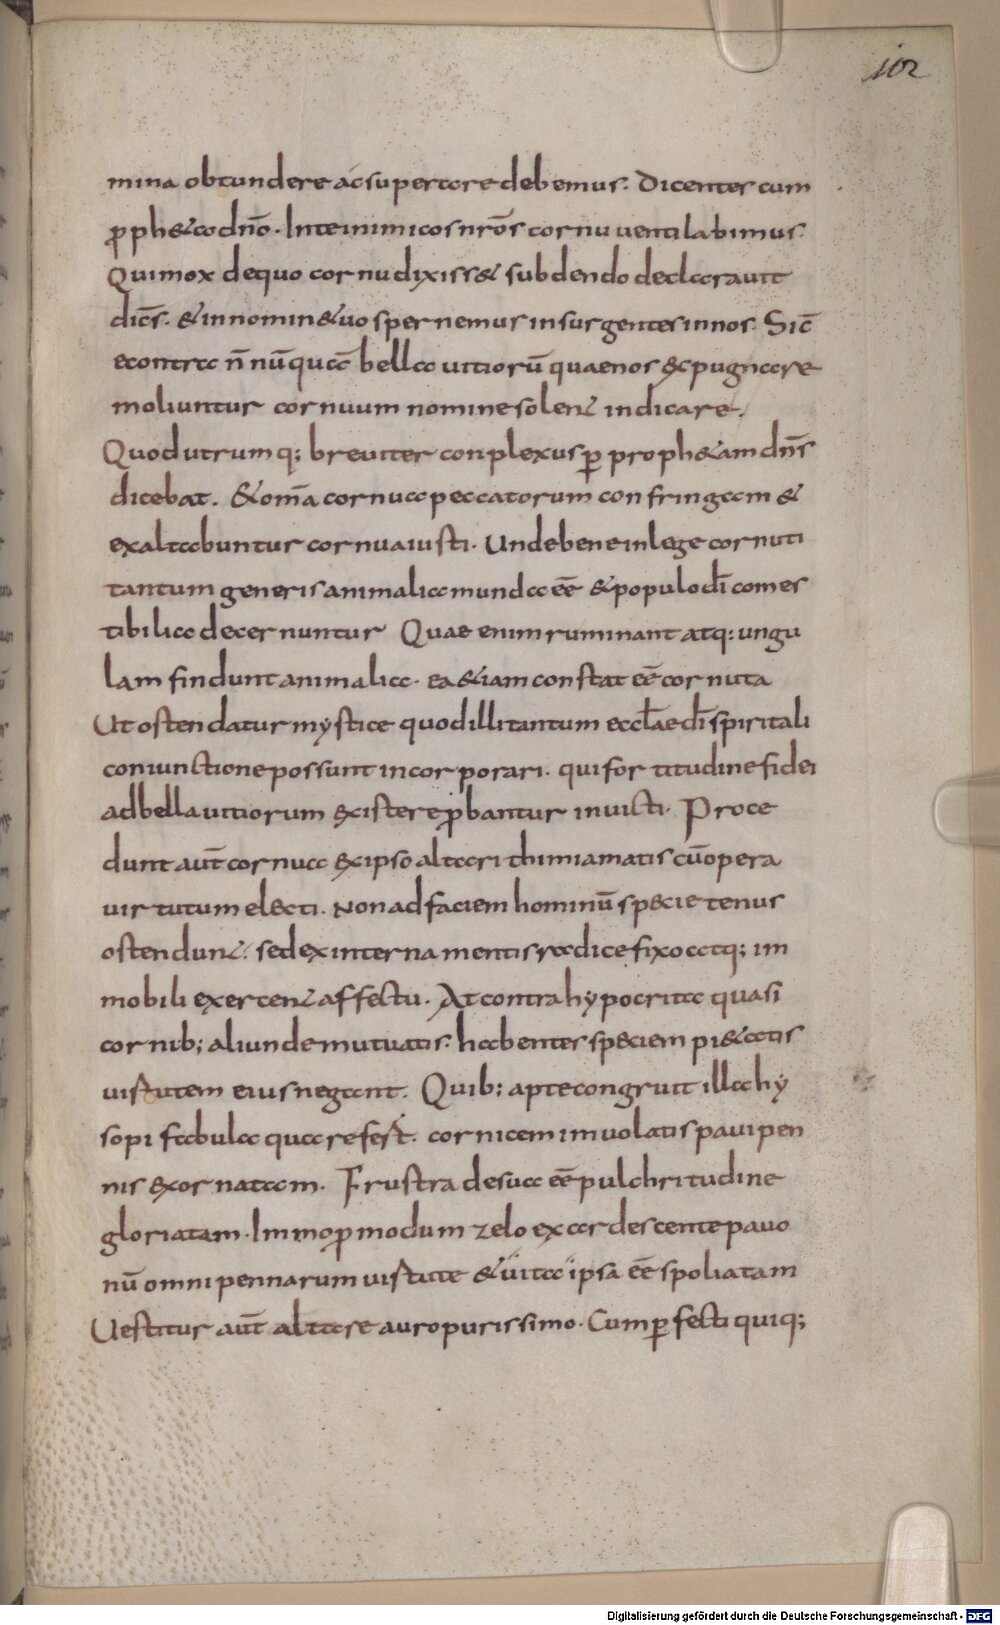 102
mina obtundere ac superare debemus. Dicentes cum
ꝓph&a dn̄o. Inte inimicos nr̄os cornu ventilabimus.
Qui mox de quo cornu dixiss& subdendo declarauit
dicēs. & in nomin& uo spernemus insurgentes in nos. Sic̄
econtra n̄ nūquā bella uitiorū quae nos expugnare
moliuntur cornuum nomine solent indicare.
Quod utrumq; breuiter conplexus ꝑ proph&am dn̄s
dicebat. & om̄a cornua peccatorum confringam &
exaltabuntur cornua iusti. Unde bene in lege cornuti
tantum generis animalia munda eē & populo dī comes
tibilia decernuntur Quae enim ruminant atq: ungu
lam findunt animalia. ea &iam constat eē cornuta
Ut ostendatur mystice quod illi tantum eccl̄ae dī spiritali
coniunctione possunt incorporari. qui fortitudine fidei
ad bella uitiorum existere ꝓbantur inuicti. Proce
dunt aut̄ cornua ex ipso altari thimiamatis cū opera
uirtutum electi. Non ad faciem hominū specie tenus
ostendunt. sed ex interna mentis radice fixo atq; im
mobili exercent affectu. At contra hypocritae quasi
cornib; aliunde mutuatis. habentes speciem pi&atis
uirtutem eius negant. Quib; apte congruit illa hy
sopi fabula quae refert. cornicem imuolatis paui pen
nis exornatam. Frustra de sua eē pulchritudine
gloriatam. Immo ꝓ modum zelo exardescente pauo
nū omni pennarum uirtute & uita ipsa eē spoliatam
Uestitur aut̄ altare auro purissimo. Cum ꝑfecti quiq;
Digitalisierung gefördert durch die Deutsche Forschungsgemeinschaft - DFG